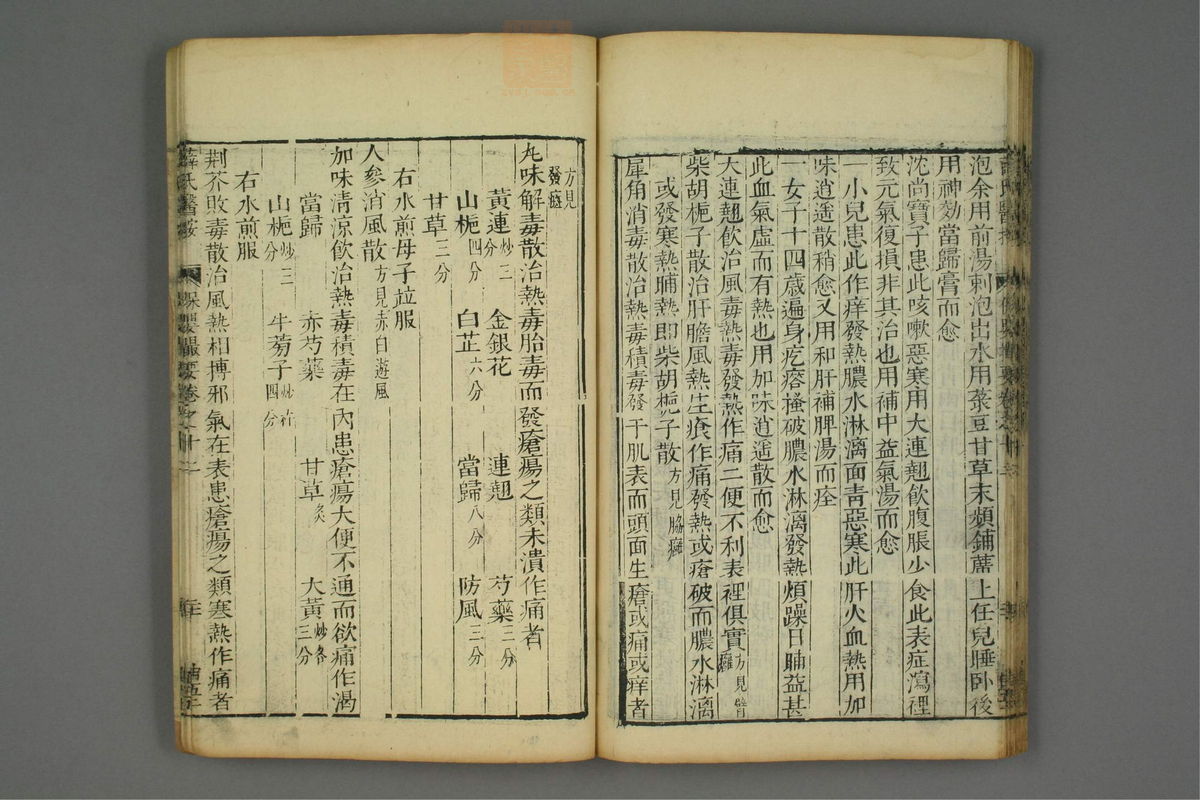 泡余用前湯刺泡出水用菉豆甘草末頻鋪蓆上任兒睡卧後
用神効當歸膏而愈
沈尚寶子患此咳嗽惡寒用大連翹飲腹脹少食此表症瀉裡
致元氣復損非其治也用補中益氣湯而愈
一小兒患此作痒發熱膿水淋漓面青惡寒此肝火血熱用加
味逍遥散稍愈又用和肝補脾湯而痊
一女子十四歲遍身疙瘩搔破膿水淋漓發熱煩躁日晡益甚
此血氣虛而有熱也用加味逍遥散而愈
大連翹飲治風毒熱毒發熱作痛二便不利表裡俱實方見臂癰
柴胡梔子散治肝膽風熱生痰作痛發熱或瘡破而膿水淋漓
或發寒熱晡熱即柴胡梔子散方見脇癰
犀角消毒散治熱毒積毒發于肌表而頭面生瘡或痛或痒者
方見發癍
九味解毒散治熱毒胎毒而發瘡瘍之類未潰作痛者
黃連炒二分 金銀花 連翹 芍藥二分
山梔四分 白芷六分 當歸八分 防風三分
甘草三分
右水煎母子竝服
人參消風散方見赤白遊風
加味清涼飲治熱毒積毒在內患瘡瘍大便不通而欲痛作渴
當歸 赤芍藥 甘草炙 大黃炒各三分
山梔炒三分 牛蒡子炒杵四分
右水煎服
荆芥敗毒散治風熱相摶邪氣在表患瘡瘍之類寒熱作痛者
薛氏醫按 保嬰撮要卷之十二